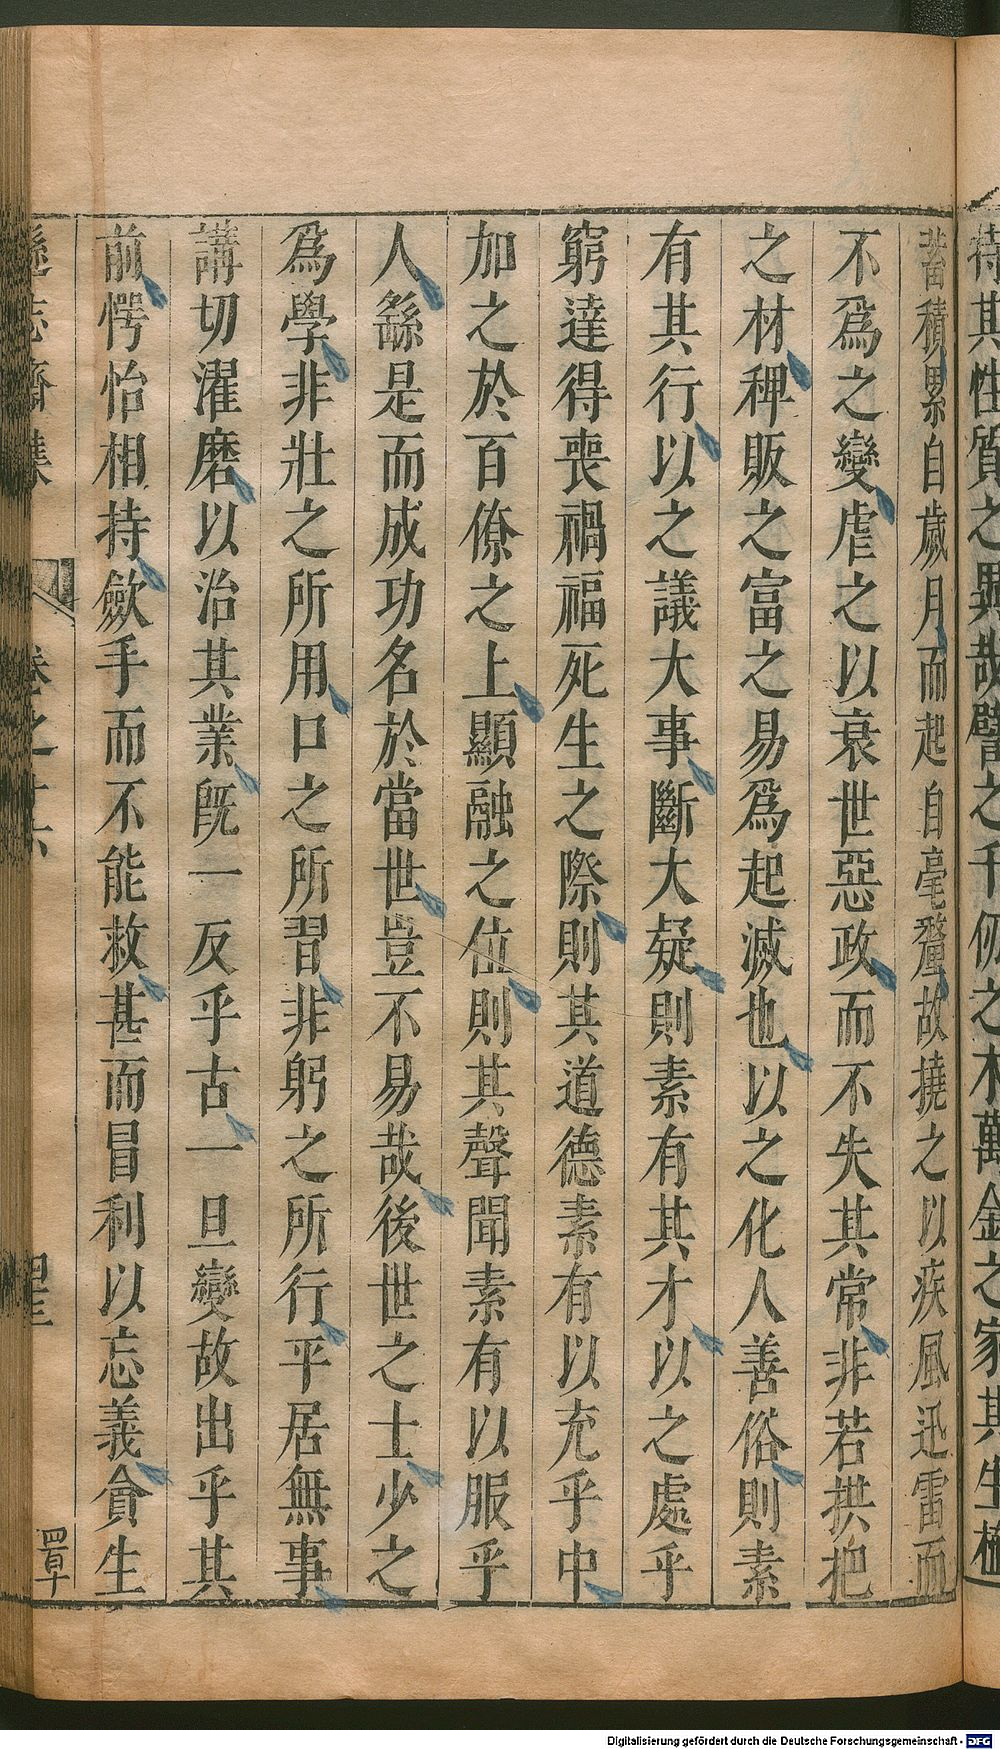 待其性質之異哉譬之千仞之木萬金之家其生植
蓄積累自歲月而起自毫釐故撓之以疾風迅雷而
不爲之變虐之以衰世惡政而不失其常非若拱把
之材稗販之富之易爲起滅也以之化人善俗則素
有其行以之議大事斷大疑則素有其才以之處乎
窮達得喪禍福死生之際則其道德素有以充乎中
加之於百僚之上顯融之位則其聲聞素有以服乎
人繇是而成功名於當世豈不易哉後世之士少之
爲學非壯之所用口之所習非躬之所行平居無事
講切濯磨以治其業旣一反乎古一旦變故出乎其
前愕怡相持斂手而不能救甚而冒利以忘義貪生
遜志齋集 卷之十六
Digitalisierung gefördert durch die Deutsche Forschungsgemeinschaft - DFG